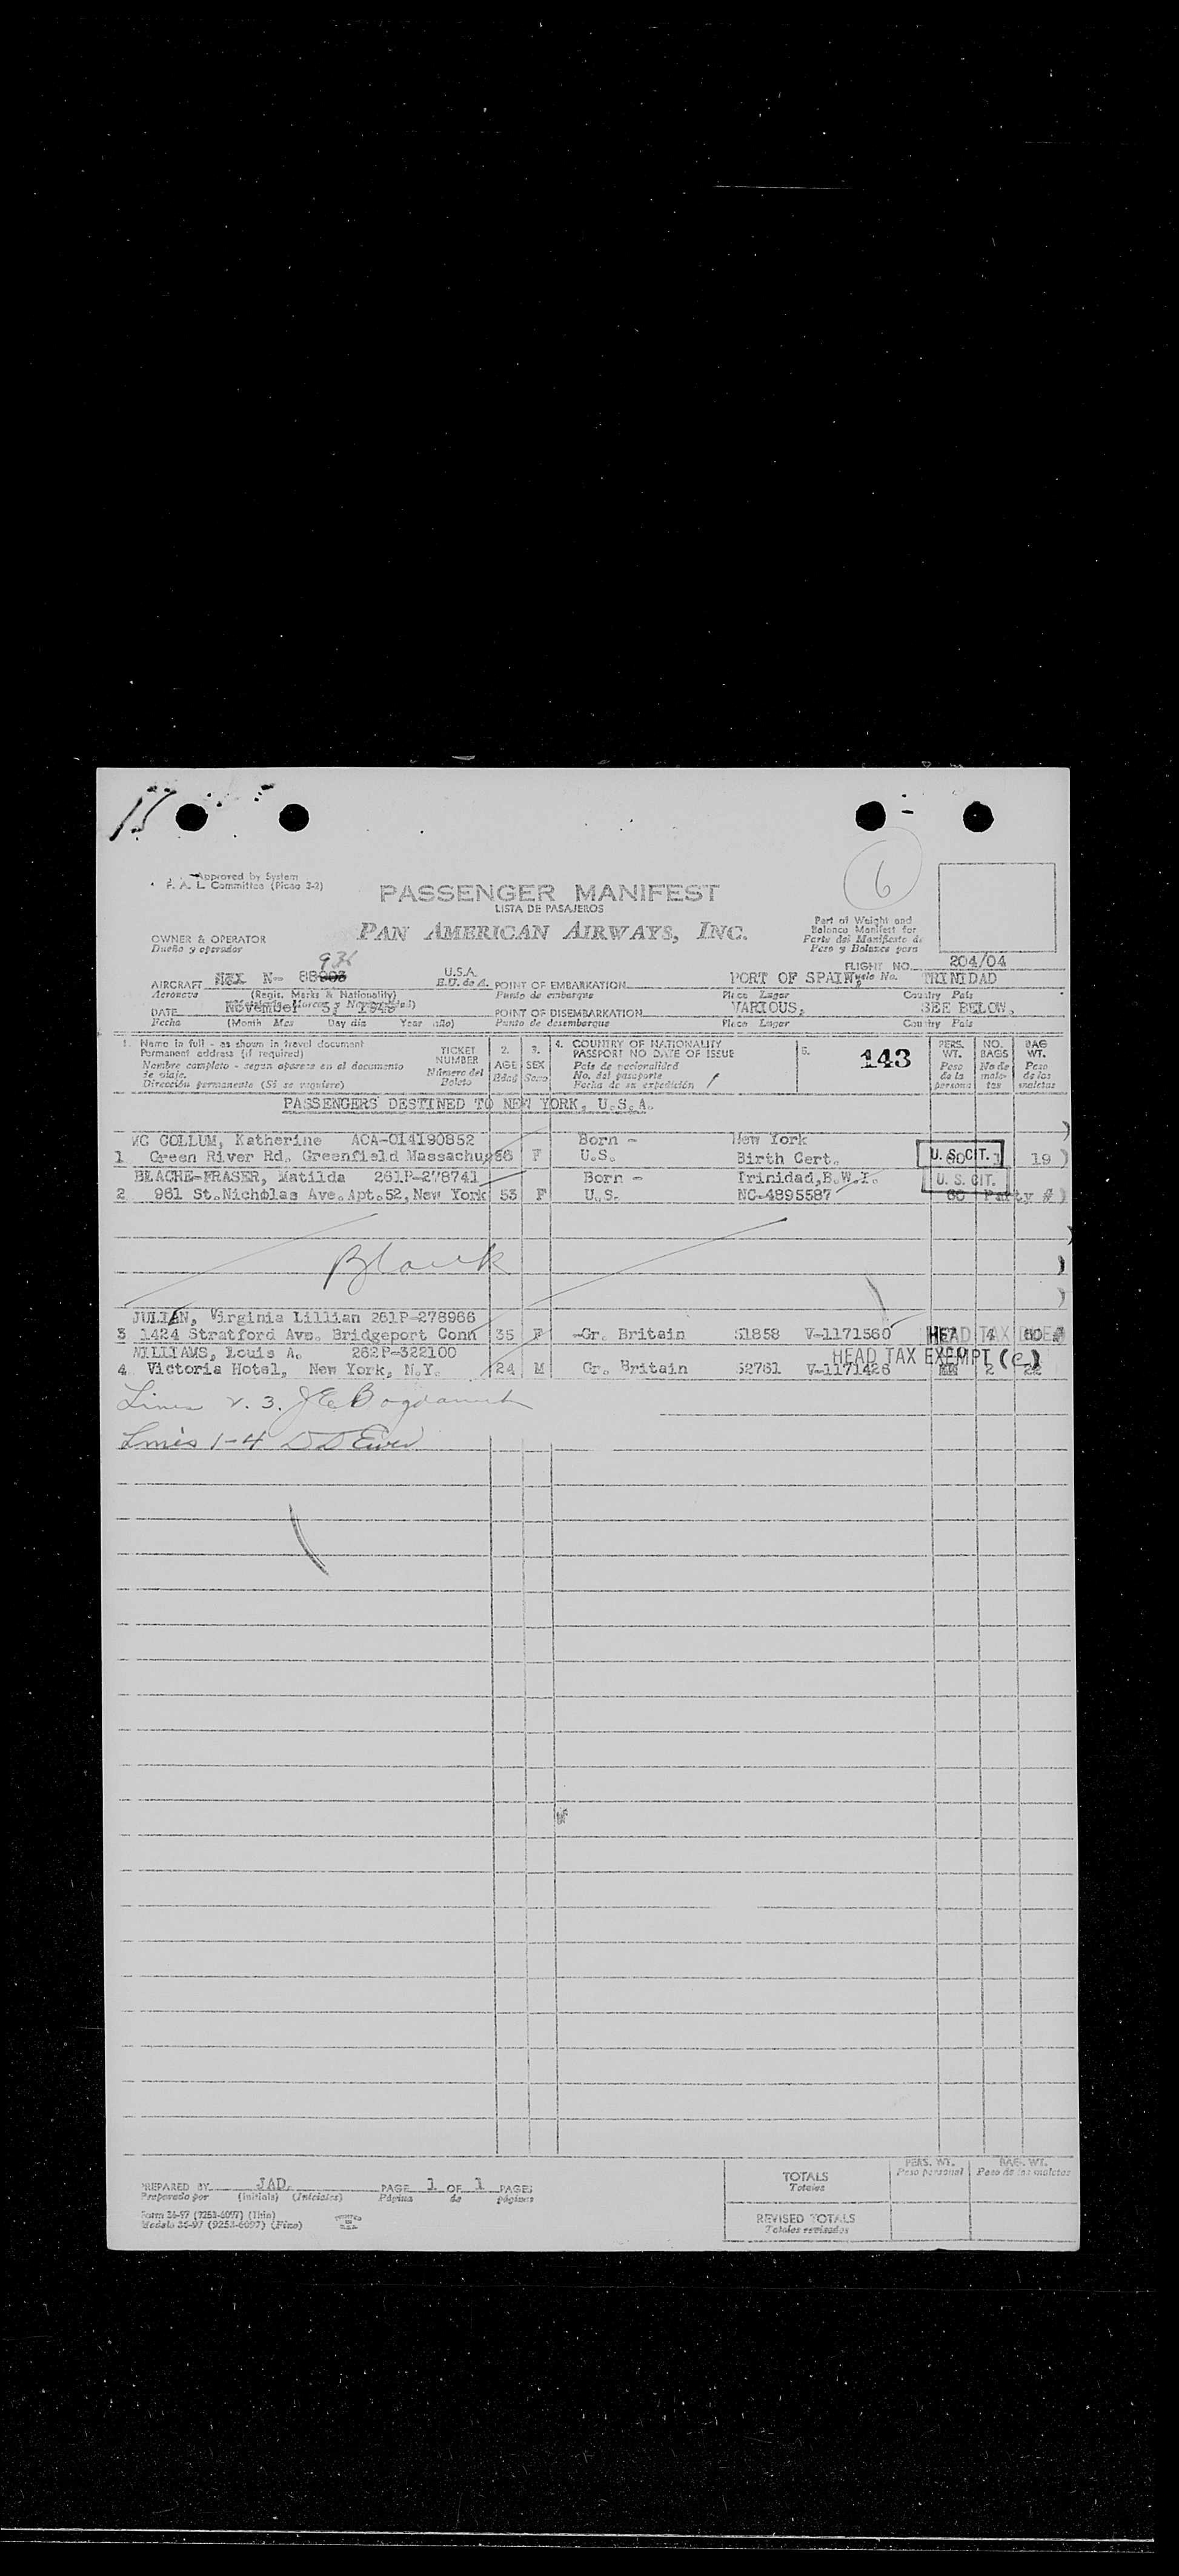 Approved by System
P. A. L. Committee (Picao 3-2)
6
PASSENGER MANIFEST
LISTA DE PASAJEROS
PAN AMERICAN AIRWAYS, INC.
Part of Weight and
Balance Manifest for
Parte del Manifiesto de
Peso y Balance para
OWNER & OPERATOR
Dueño y operador
FLIGHT NO. 204/04
Vuelo No.
AIRCRAFT N- 88 U.S.A. POINT OF EMBARKATION PORT OF SPAIN, TRINIDAD
Aeronave (Regis. Marks & Nationality) E.U. de A. Punto de embarque Place Lugar Country País
DATE November 5, POINT OF DISEMBARKATION VARIOUS, SEE BELOW.
Fecha (Month Mes Day día Year año) Punto de desembarque Place Lugar Country País
1. Name in full - as shown in travel document
Permanent address (if required)
Nombre completo - segun aparece en el documento
de viaje.
Dirección permanente (Si se requiere)
TICKET
NUMBER
Número del
Boleto
2.
AGE
Edad
3.
SEX
Sexo
4. COUNTRY OF NATIONALITY
PASSPORT NO DATE OF ISSUE
País de nacionalidad
No. del pasaporte
Fecha de su expedición
5.
143
PERS.
WT.
Peso
de la
persona
NO.
BAGS
No de
male-
tas
BAG
WT.
Peso
de las
maletas
PASSENGERS DESTINED TO NEW YORK, U.S.A.
MC COLLUM, Katherine ACA-014190852 Born - New York
1 Green River Rd. Greenfield Massachu F U.S. Birth Cert. U. S. CIT. 60 1 19 )
BLACHE-FRASER, Matilda 261P-278741 Born - Trinidad, B.W.I.
2 961 St. Nicholas Ave. Apt. 52, New York 53 F U.S. NC-4895587 U. S. CIT. 60 Party # )
Blank
JULIEN, Virginia Lillian 261P-278966
3 1424 Stratford Ave. Bridgeport Conn 35 F Gr. Britain 51858 V-1171560 HEAD TAX
WILLIAMS, Louis A. 262P-322100 HEAD TAX EXEMPT (C)
4 Victoria Hotel, New York, N.Y. 24 M Gr. Britain 52761 V-1171426 2 22
Lines 1-4
PREPARED BY JAD. PAGE 1 OF 1 PAGES
Preparado por (Initials) (Iniciales) Página de páginas
Form 36-97 (9253-6097) (Thin)
Modelo 36-97 (9253-6097) (Fino)
PERS. WT.
Peso personal
BAG. WT.
Peso de las maletas
TOTALS
Totales
REVISED TOTALS
Totales revisados